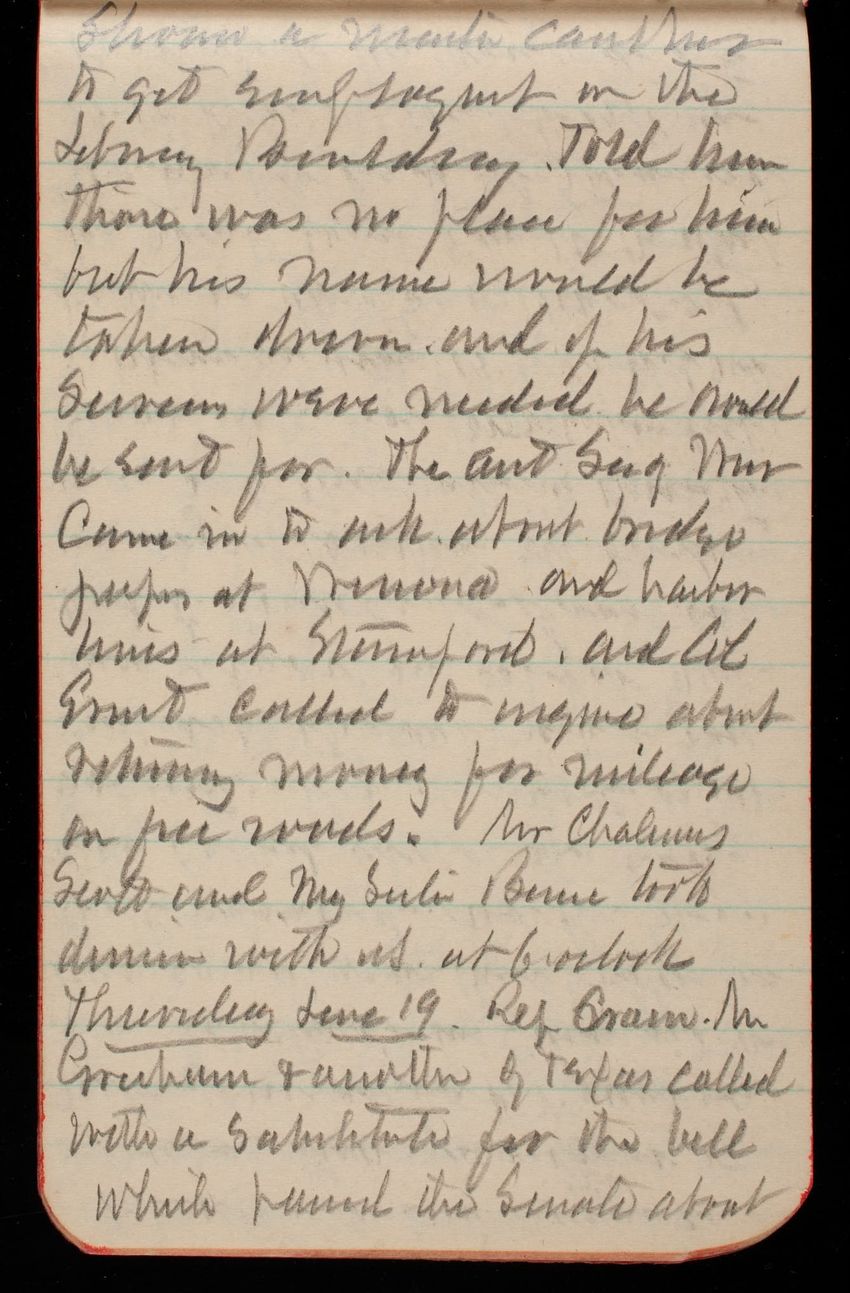 to get employment on the
Library Building. Told him
there was no place for him
but his name would be
taken down. and if his
services were needed he would
be sent for. The asst Secy War
came in to ask about bridge
at and harbor
lines at Stamford. and Col
Grant called to inquire about
money for mileage
on free roads. Mr Chalmers
Scott and took
dinner with us. at 6 oclock
Thursday June 19. Rep Crain. Mr
& another of Texas called
with a substitute for the bill
which passed the Senate about